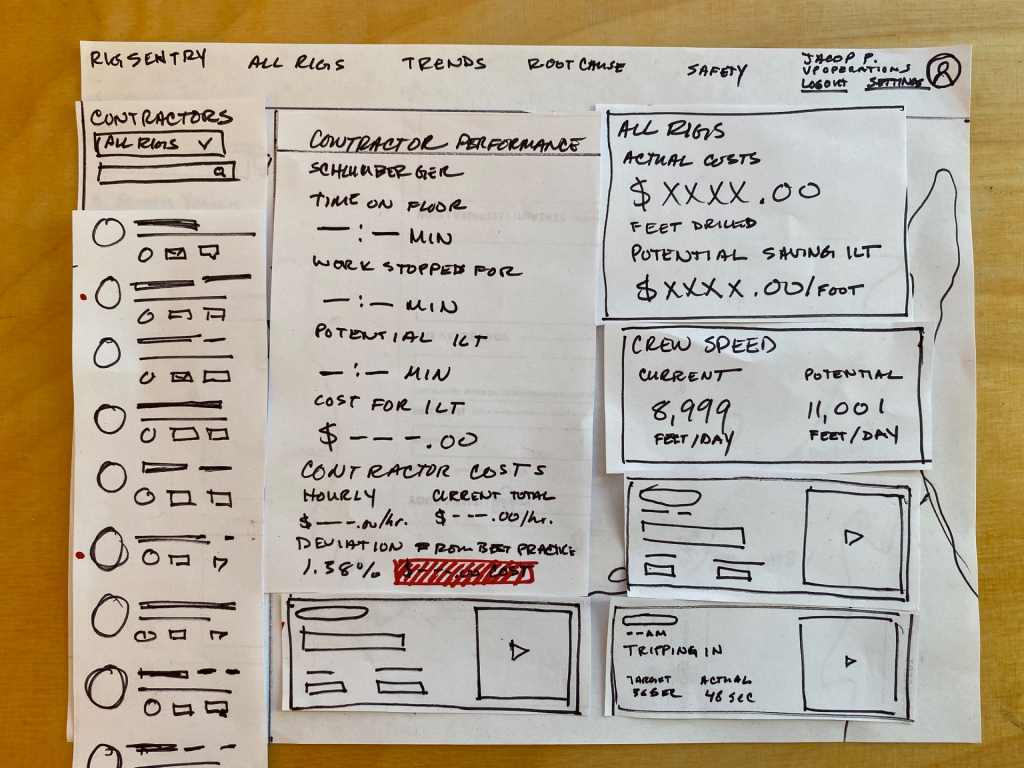 RIGSENTRY
ALL RIGS
TRENDS
ROOT CAUSE
SAFETY
JACOP P.
VP OPERATIONS
LOGOUT SETTINGS
CONTRACTORS
ALL RIGS
CONTRACTOR PERFORMANCE
SCHLUMBERGER
TIME ON FLOOR
—:— MIN
WORK STOPPED FOR
—:— MIN
POTENTIAL ILT
—:— MIN
COST FOR ILT
$ ---.00
CONTRACTOR COSTS
HOURLY CURRENT TOTAL
$ ---.00/hr. $ ---.00/hr.
DEVIATION FROM BEST PRACTICE
1.38% COST
ALL RIGS
ACTUAL COSTS
$ XXXX.00
FEET DRILLED
POTENTIAL SAVING ILT
$XXXX.00/FOOT
CREW SPEED
CURRENT POTENTIAL
8,999 11,001
FEET/DAY FEET/DAY
--AM
TRIPPING IN
TARGET ACTUAL
46 SEC